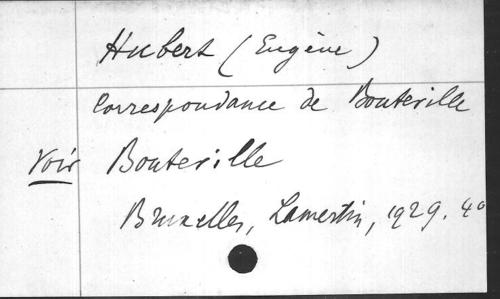 Hubert (Eugène)
Correspondance de Bouteville
Voir Bouteville
Bruxelles, Lamertin, 1929. 4°